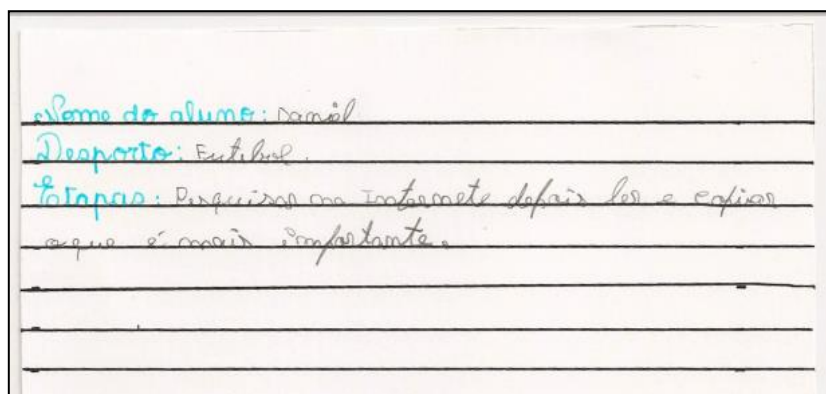 Nome do aluno: Daniel
Desporto: Futebol.
Etapas: Pesquisar na Internete depois ler e copiar
oque é mais importante.